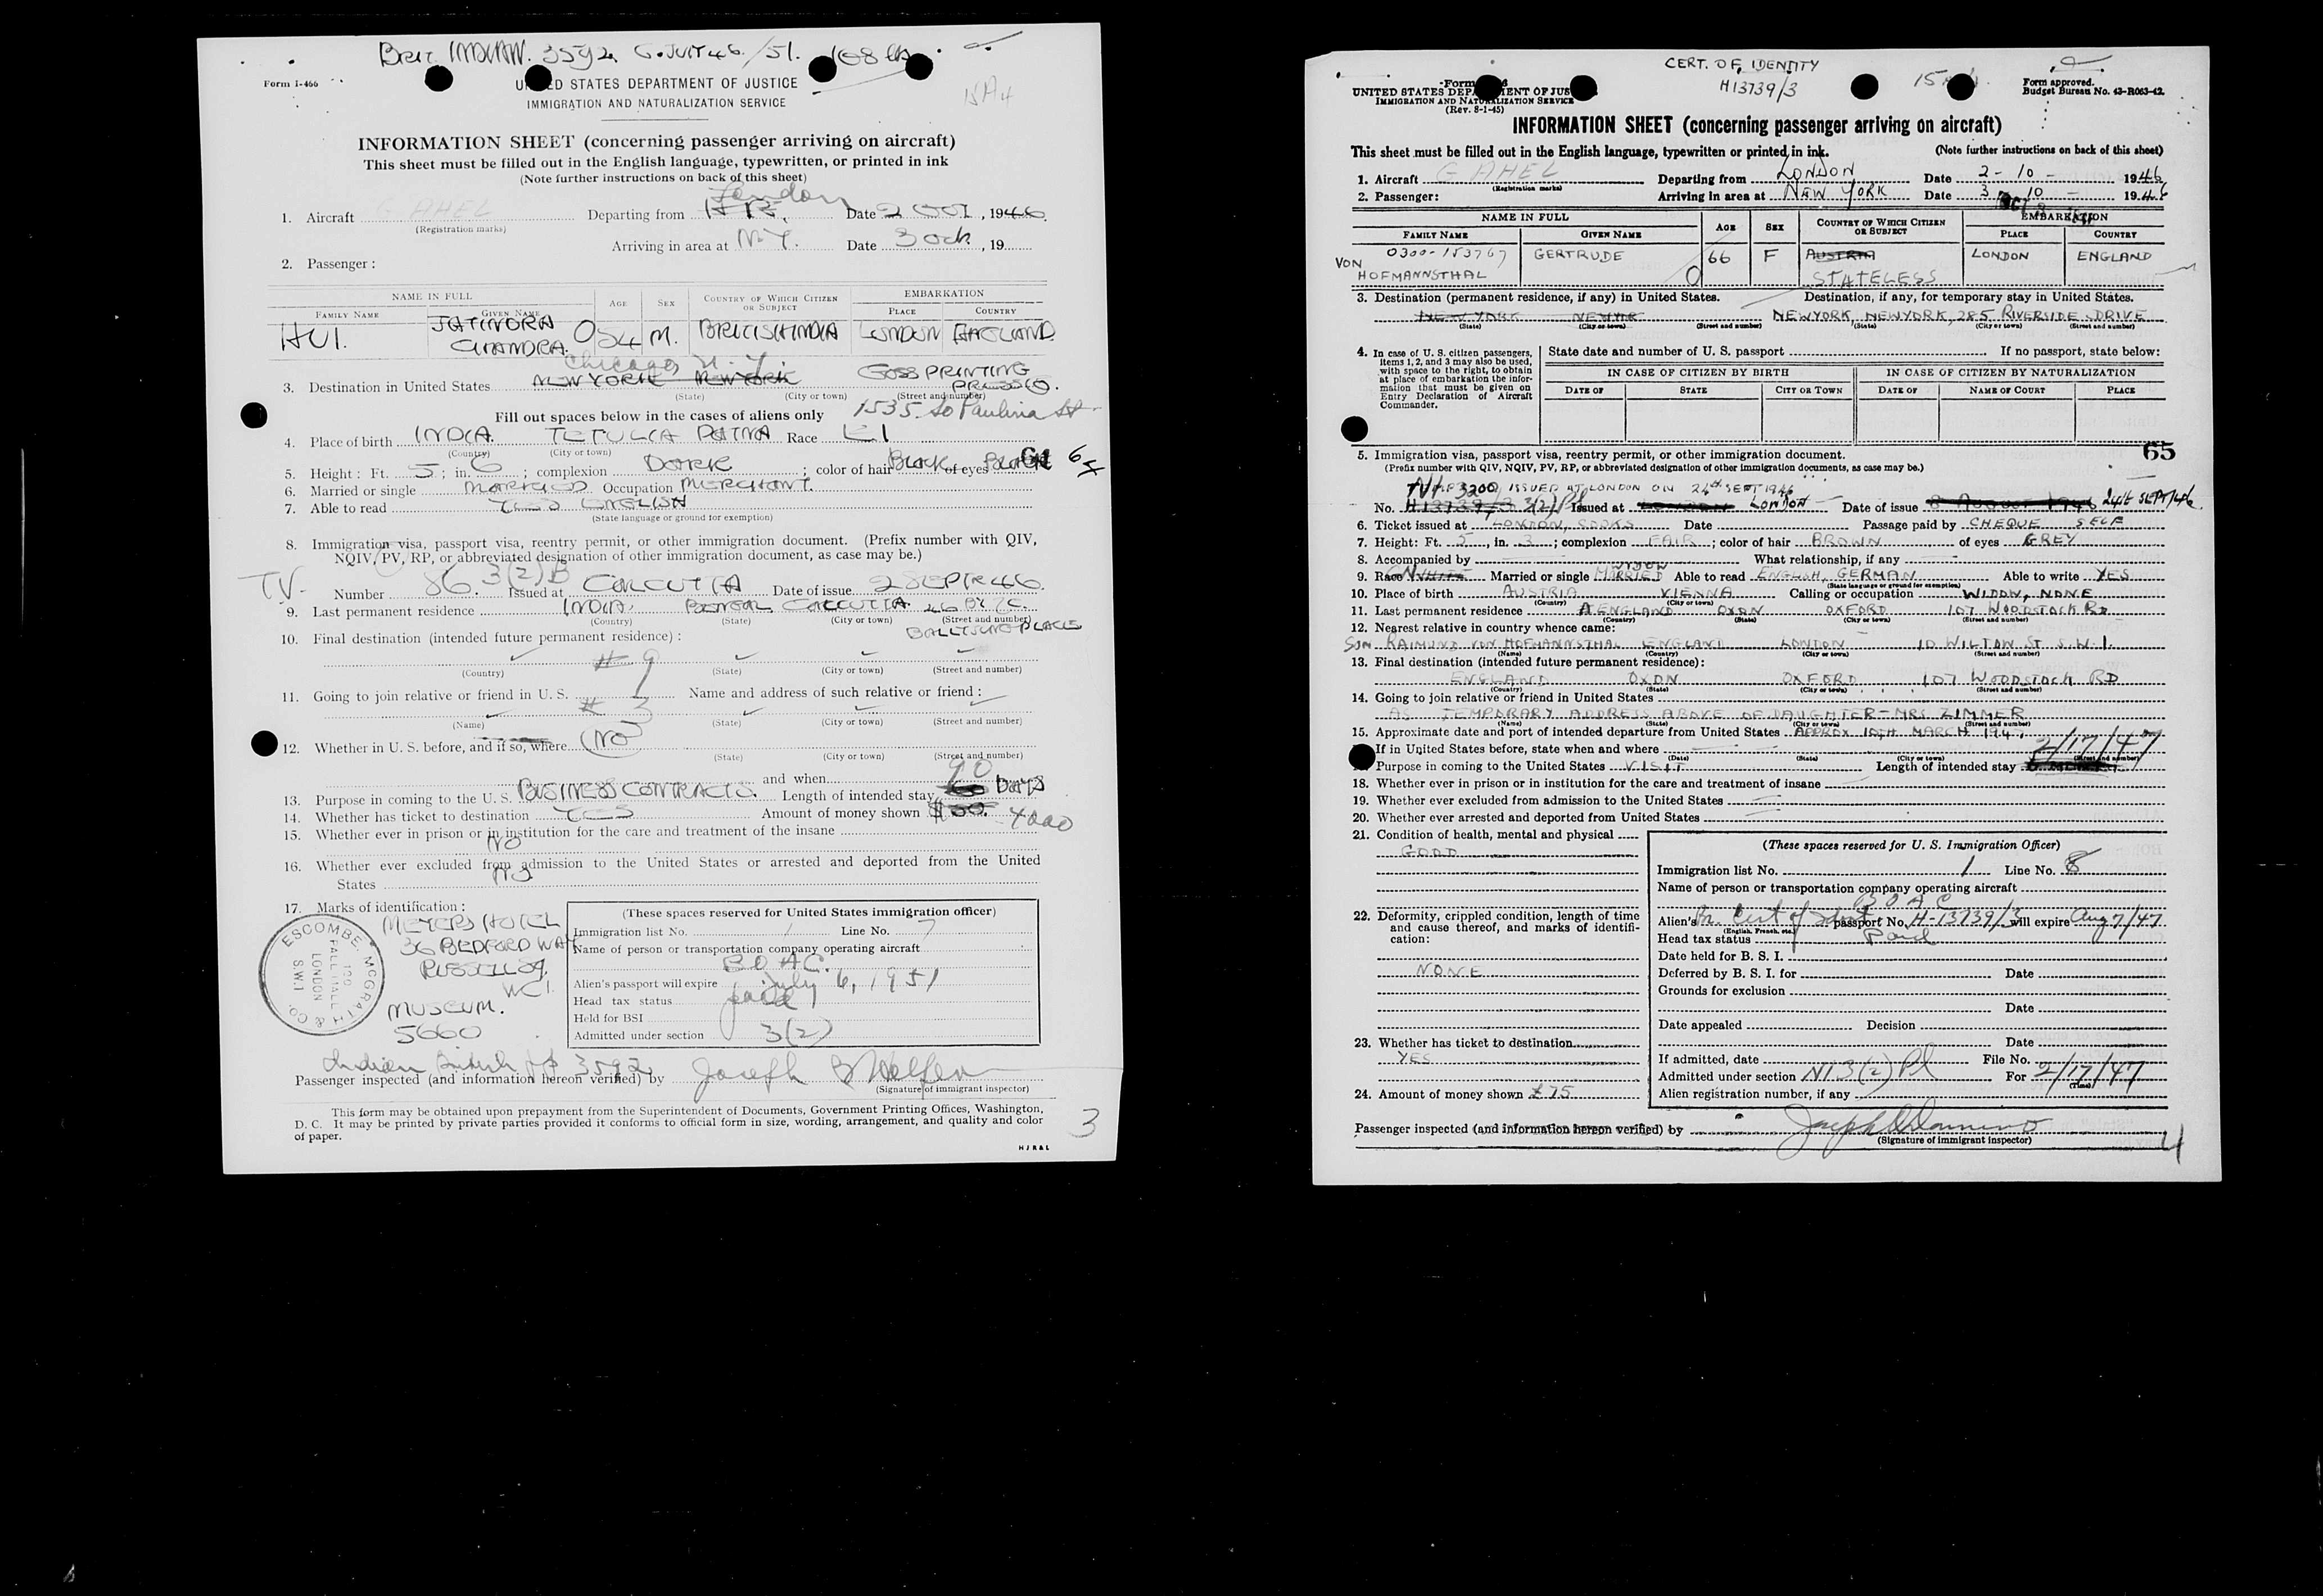 Brit. INDIAN. 3592 6. JULY 46. /51. 168 lbs
Form I-466
UNITED STATES DEPARTMENT OF JUSTICE
IMMIGRATION AND NATURALIZATION SERVICE
INFORMATION SHEET (concerning passenger arriving on aircraft)
This sheet must be filled out in the English language, typewritten, or printed in ink
(Note further instructions on back of this sheet)
London
1. Aircraft G AHEL Departing from Date 2 OCT, 1946
(Registration marks)
Arriving in area at N.Y. Date 3 Oct, 19
2. Passenger:
NAME IN FULL AGE SEX COUNTRY OF WHICH CITIZEN OR SUBJECT EMBARKATION
FAMILY NAME GIVEN NAME PLACE COUNTRY
HUI. JATINDRA CHANDRA 54 M. BRITISH INDIA LONDON ENGLAND
Chicago
3. Destination in United States NEW YORK NEW YORK GOSS PRINTING PRESS CO.
(State) (City or town) (Street and number)
Fill out spaces below in the cases of aliens only 1535 So Paulina St
4. Place of birth INDIA. TETULIA PATNA Race E I
(Country) (City or town)
5. Height: Ft. 5; in. 6; complexion DARK; color of hair BLACK of eyes BLACK 64
6. Married or single MARRIED Occupation MERCHANT.
7. Able to read YES ENGLISH
(State language or ground for exemption)
8. Immigration visa, passport visa, reentry permit, or other immigration document. (Prefix number with QIV,
NQIV, PV, RP, or abbreviated designation of other immigration document, as case may be.)
TV- Number 86. 3(2)B Issued at CALCUTTA Date of issue 2 SEPTR 46.
9. Last permanent residence INDIA. BENGAL CALCUTTA.
(Country) (State) (City or town) (Street and number)
10. Final destination (intended future permanent residence): BALLYGUNGE PLACE
# 9
(Country) (State) (City or town) (Street and number)
11. Going to join relative or friend in U. S. # 3 Name and address of such relative or friend:
(Name) (State) (City or town) (Street and number)
12. Whether in U. S. before, and if so, where NO
(State) (City or town) (Street and number)
and when
13. Purpose in coming to the U. S. BUSINESS CONTRACTS. Length of intended stay 90 DAYS
14. Whether has ticket to destination YES Amount of money shown $ 4000
15. Whether ever in prison or in institution for the care and treatment of the insane
NO
16. Whether ever excluded from admission to the United States or arrested and deported from the United
States NO
17. Marks of identification:
ESCOMBE, McGRATH & CO.
120
PALL MALL
LONDON
S.W.1
MEYERS HOTEL
36 BEDFORD WAY
RUSSELL SQ.
WC1.
MUSEUM.
5660
(These spaces reserved for United States immigration officer)
Immigration list No. 1 Line No. 7
Name of person or transportation company operating aircraft
B.O.A.C.
Alien's passport will expire July 6, 1951
Head tax status paid
Held for BSI
Admitted under section 3(2)
Indian British PP 3592
Passenger inspected (and information hereon verified) by Joseph
(Signature of immigrant inspector)
This form may be obtained upon prepayment from the Superintendent of Documents, Government Printing Offices, Washington,
D. C. It may be printed by private parties provided it conforms to official form in size, wording, arrangement, and quality and color
of paper.
3
H J R & L
CERT. OF IDENTITY
H13739/3
UNITED STATES DEPARTMENT OF JUSTICE
IMMIGRATION AND NATURALIZATION SERVICE
(Rev. 8-1-45)
Form approved.
Budget Bureau No. 43-R063-42.
INFORMATION SHEET (concerning passenger arriving on aircraft)
This sheet must be filled out in the English language, typewritten or printed in ink. (Note further instructions on back of this sheet)
1. Aircraft G AHEL Departing from LONDON Date 2 - 10 - 1946
(Registration marks)
2. Passenger: Arriving in area at NEW YORK Date 3 - 10 - 1946
NAME IN FULL AGE SEX COUNTRY OF WHICH CITIZEN OR SUBJECT EMBARKATION
FAMILY NAME GIVEN NAME PLACE COUNTRY
0300-153767
VON HOFMANNSTHAL GERTRUDE 66 F AUSTRIA STATELESS LONDON ENGLAND
3. Destination (permanent residence, if any) in United States. Destination, if any, for temporary stay in United States.
NEW YORK NEW YORK NEWYORK, NEWYORK, 285 RIVERSIDE DRIVE
(State) (City or town) (Street and number) (State) (City or town) (Street and number)
4. In case of U. S. citizen passengers, items 1, 2, and 3 may also be used, with space to the right, to obtain at place of embarkation the information that must be given on Entry Declaration of Aircraft Commander.
State date and number of U. S. passport If no passport, state below:
IN CASE OF CITIZEN BY BIRTH IN CASE OF CITIZEN BY NATURALIZATION
DATE OF STATE CITY OR TOWN DATE OF NAME OF COURT PLACE
65
5. Immigration visa, passport visa, reentry permit, or other immigration document.
(Prefix number with QIV, NQIV, PV, RP, or abbreviated designation of other immigration documents, as case may be.)
3200 ISSUED AT LONDON ON 24th SEPT 1946
No. H13739/3 3(2)Pl Issued at LONDON Date of issue 8 August 1946 24th SEPT/46
6. Ticket issued at LONDON, COOKS Date Passage paid by CHEQUE SELF
7. Height: Ft. 5, in. 3; complexion FAIR; color of hair BROWN of eyes GREY
8. Accompanied by What relationship, if any
9. Race WHITE Married or single MARRIED WIDOW Able to read ENGLISH, GERMAN Able to write YES
(State language or ground for exemption)
10. Place of birth AUSTRIA VIENNA Calling or occupation WIDOW, NONE
(Country) (City or town)
11. Last permanent residence ENGLAND OXON OXFORD 107 WOODSTOCK RD
(Country) (State) (City or town) (Street and number)
12. Nearest relative in country whence came:
SON RAIMUND VON HOFMANNSTHAL ENGLAND LONDON 10 WILTON ST S.W.1.
(Name) (Country) (City or town) (Street and number)
13. Final destination (intended future permanent residence):
ENGLAND OXON OXFORD 107 WOODSTOCK RD
(Country) (State) (City or town) (Street and number)
14. Going to join relative or friend in United States
AS TEMPORARY ADDRESS ABOVE OF DAUGHTER - MRS ZIMMER
(Name) (State) (City or town) (Street and number)
15. Approximate date and port of intended departure from United States APPROX 10TH MARCH 1947
If in United States before, state when and where 2/17/47
(Date) (State) (City or town) (Street and number)
Purpose in coming to the United States VISIT Length of intended stay
18. Whether ever in prison or in institution for the care and treatment of insane
19. Whether ever excluded from admission to the United States
20. Whether ever arrested and deported from United States
21. Condition of health, mental and physical
GOOD
22. Deformity, crippled condition, length of time and cause thereof, and marks of identification:
NONE
23. Whether has ticket to destination
YES
24. Amount of money shown £75
(These spaces reserved for U. S. Immigration Officer)
Immigration list No. 1 Line No. 8
Name of person or transportation company operating aircraft
B O A C
Alien's Br. Cert of Ident passport No. H-13739/3 will expire Aug 7/47
(English, French, etc.)
Head tax status Paid
Date held for B. S. I.
Deferred by B. S. I. for Date
Grounds for exclusion
Date
Date appealed Decision
Date
If admitted, date File No.
Admitted under section NI 3(2) Pl For 2/17/47
(Time)
Alien registration number, if any
Passenger inspected (and information hereon verified) by
(Signature of immigrant inspector)
4